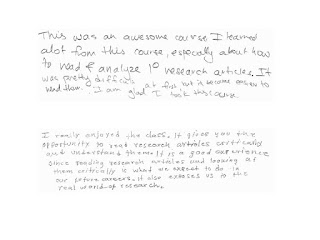 This was an awesome course I learned
alot from this course, especally about how
to read & analyze 1° research articles. It
was pretty difficult at first, but it became easier to
read them. I am glad I took this course.
I really enjoyed the class. It gives you the
opportunity to read research articles critically
and understand them. It is a good experience
since reading research articles and looking at
them critically is what we expect to do in
our future careers. It also exposes us to the
real world of research.